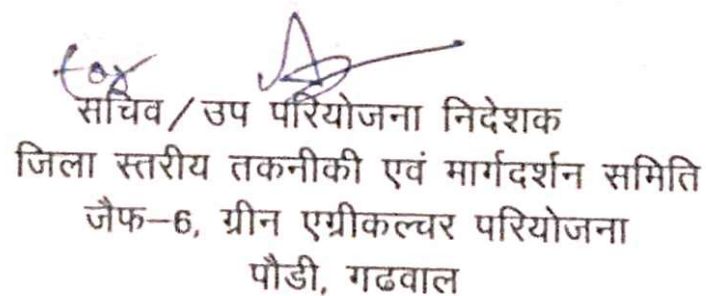 for
सचिव/उप परियोजना निदेशक
जिला स्तरीय तकनीकी एवं मार्गदर्शन समिति
जैफ–6, ग्रीन एग्रीकल्चर परियोजना
पौडी, गढवाल